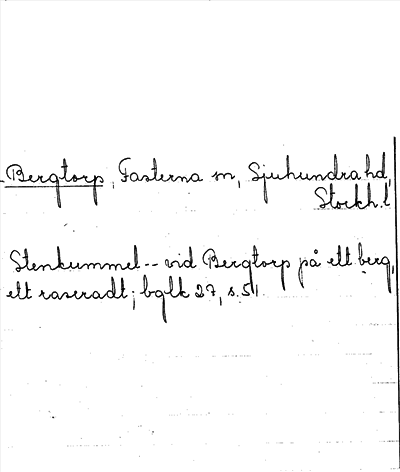 Bergtorp, Fasterna sn, Sjuhundra hd,
Stockh. l
Stenkummel -- vid Bergtorp på ett berg,
ett raseradt; bglk 27, s. 51